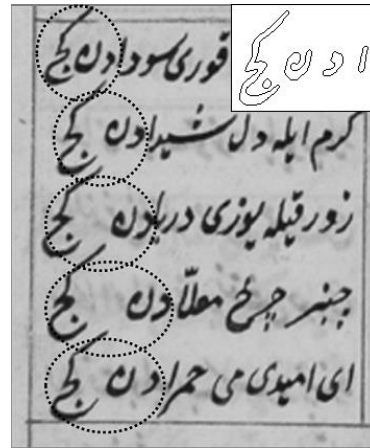 قوری سودادن کج
ادن کج
کرم ایله دل شیدادن کج
زورقیله یوزی دریادن کج
چنبر چرخ معلّادن کج
ای امیدی می حمرادن کج